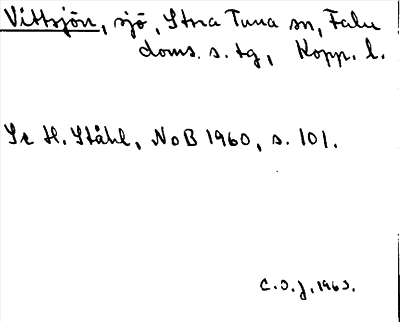 Vittsjön, sjö, Stora Tuna sn, Falu
doms. s. tg, Kopp. l.
Se H. Ståhl, NoB 1960, s. 101.
C.S.J. 1963.